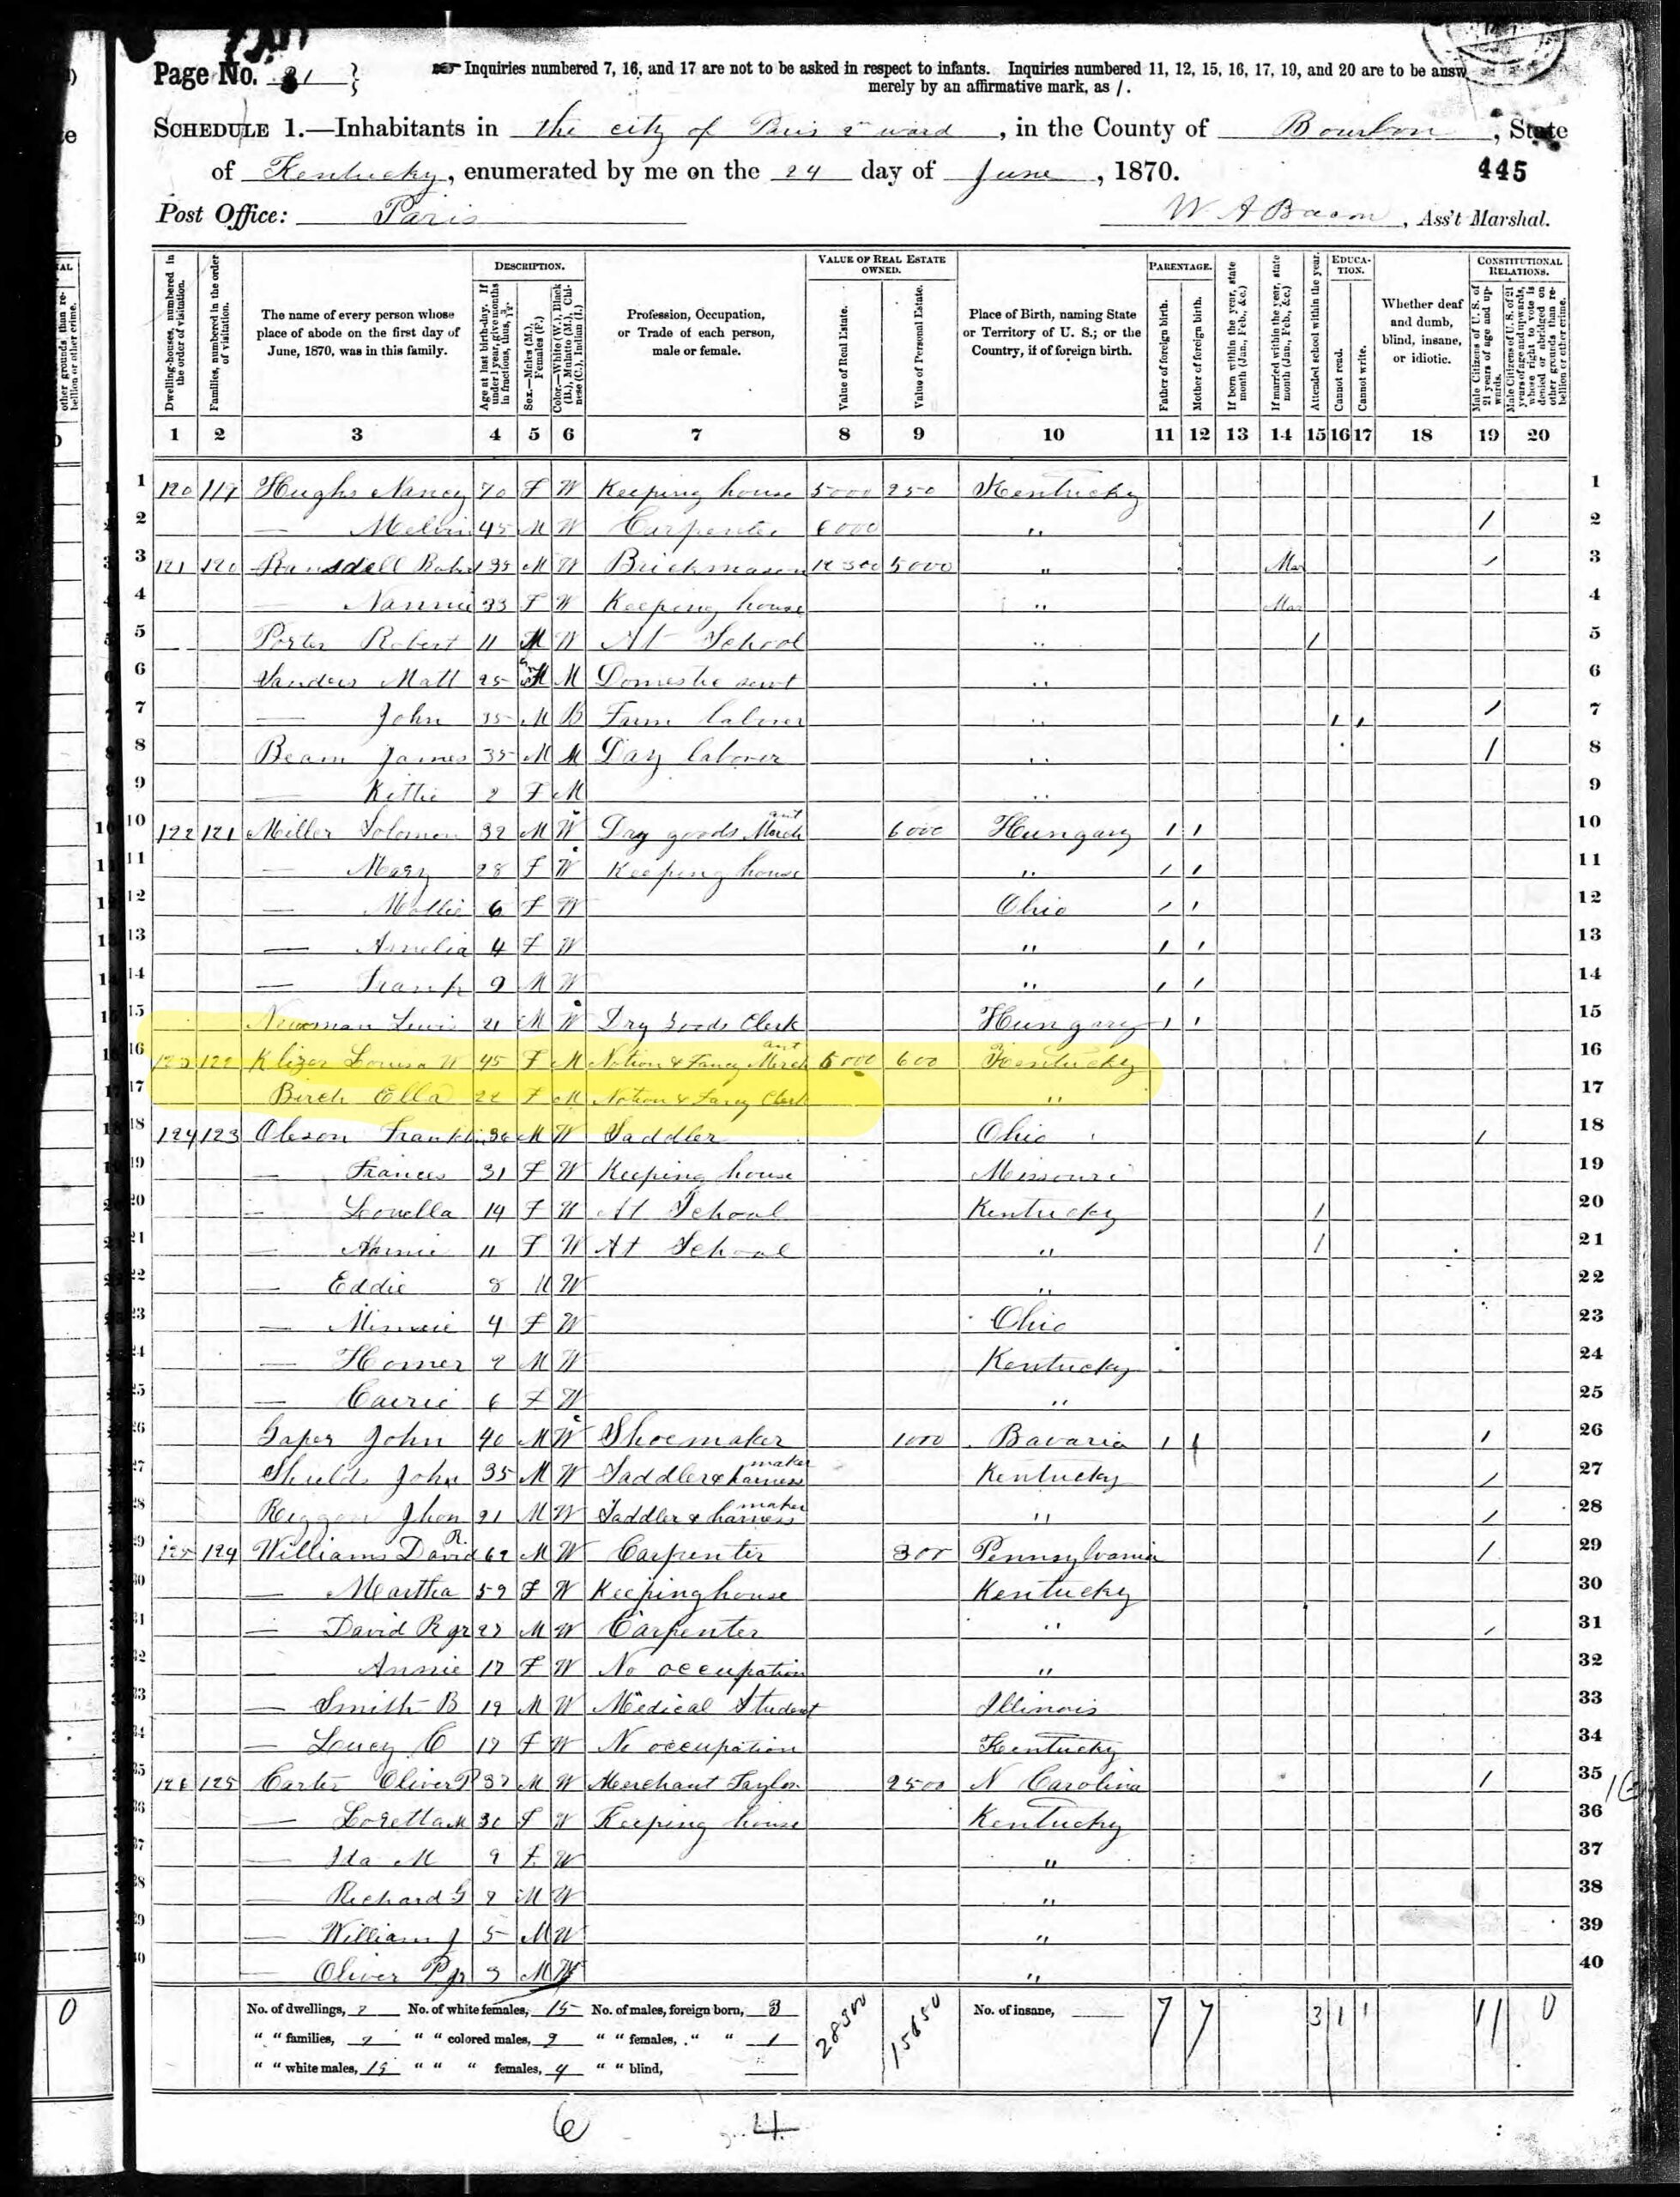 Page No. 31
Inquiries numbered 7, 16, and 17 are not to be asked in respect to infants. Inquiries numbered 11, 12, 15, 16, 17, 19, and 20 are to be answ
merely by an affirmative mark, as /.
SCHEDULE 1.—Inhabitants in the city of Paris 2 ward, in the County of Bourbon, State
of Kentucky, enumerated by me on the 24 day of June, 1870. 445
Post Office: Paris W. A Bacon, Ass't Marshal.
Dwelling-houses, numbered in the order of visitation.
Families, numbered in the order of visitation.
The name of every person whose place of abode on the first day of June, 1870, was in this family.
DESCRIPTION.
Age at last birth-day. If under 1 year, give months in fractions, thus, 3/12.
Sex.—Males (M.), Females (F.)
Color.—White (W.), Black (B.), Mulatto (M.), Chinese (C.), Indian (I.)
Profession, Occupation, or Trade of each person, male or female.
VALUE OF REAL ESTATE OWNED.
Value of Real Estate.
Value of Personal Estate.
Place of Birth, naming State or Territory of U. S.; or the Country, if of foreign birth.
PARENTAGE.
Father of foreign birth.
Mother of foreign birth.
If born within the year, state month (Jan., Feb., &c.)
If married within the year, state month (Jan., Feb., &c.)
Attended school within the year.
EDUCATION.
Cannot read.
Cannot write.
Whether deaf and dumb, blind, insane, or idiotic.
CONSTITUTIONAL RELATIONS.
Male Citizens of U. S. of 21 years of age and upwards.
Male Citizens of U. S. of 21 years of age and upwards, whose right to vote is denied or abridged on other grounds than rebellion or other crime.
1 2 3 4 5 6 7 8 9 10 11 12 13 14 15 16 17 18 19 20
1 120 119 Hughs Nancy 70 F W Keeping house 5000 250 Kentucky 1
2 — Melvin 45 M W Carpenter 6000 " / 2
3 121 120 Ransdell 39 M W Brickmason 12300 5000 " Mar / 3
4 — Nannie 33 F W Keeping house " Mar 4
5 Porter Robert 11 M W At School " / 5
6 Sanders Matt 25 M Domestic servt " 6
7 — John 35 M B Farm laborer " / / / 7
8 Beam James 35 M M Day laborer " / 8
9 — Kittie 2 F M " 9
10 122 121 Miller Solomon 32 M W Dry goods Merchant 6000 Hungary / / 10
11 — Mary 28 F W Keeping house " / / 11
12 — Mollie 6 F W Ohio / / 12
13 — Amelia 4 F W " / / 13
14 — Frank 2 M W " / / 14
15 Newman Lewis 21 M W Dry Goods Clerk Hungary / / 15
16 123 122 Klizer Louisa W 45 F M Notion & Fancy Merchant 5000 600 Kentucky 16
17 Birch Ella 22 F M Notion & Fancy Clerk " 17
18 124 123 Oleson Franklin 36 M W Saddler Ohio / 18
19 — Frances 31 F W Keeping house Missouri 19
20 — Louella 14 F W At School Kentucky / 20
21 — 11 F W At School " / 21
22 — Eddie 8 M W " 22
23 — Minnie 4 F W Ohio 23
24 — Homer 2 M W Kentucky 24
25 — Carrie 6 F W " 25
26 Gaper John 40 M W Shoemaker 1000 Bavaria / / / 26
27 Shields John 35 M W Saddler & harness maker Kentucky / 27
28 Jhon 21 M W Saddler & harness maker " / 28
29 125 124 Williams David R. 62 M W Carpenter 300 Pennsylvania / 29
30 — Martha 59 F W Keeping house Kentucky 30
31 — David R jr 27 M W Carpenter " / 31
32 — Annie 17 F W No occupation " 32
33 — Smith B 19 M W Medical Student Illinois 33
34 — Lucy C 17 F W No occupation Kentucky 34
35 126 125 Carter Oliver P 37 M W Merchant Taylor 2500 N Carolina / 35
36 — Loretta M 30 F W Keeping house Kentucky 36
37 — Ida M 9 F W " 37
38 — Richard G 7 M W " 38
39 — William J 5 M W " 39
40 — Oliver P jr 3 M W " 40
No. of dwellings, 7 No. of white females, 15 No. of males, foreign born, 3 28300 15650 No. of insane, 7 7 3 1 1 11 0
" " families, 7 " " colored males, 2 " " females, " " 1
" " white males, 19 " " " females, 4 " " blind,
6 4